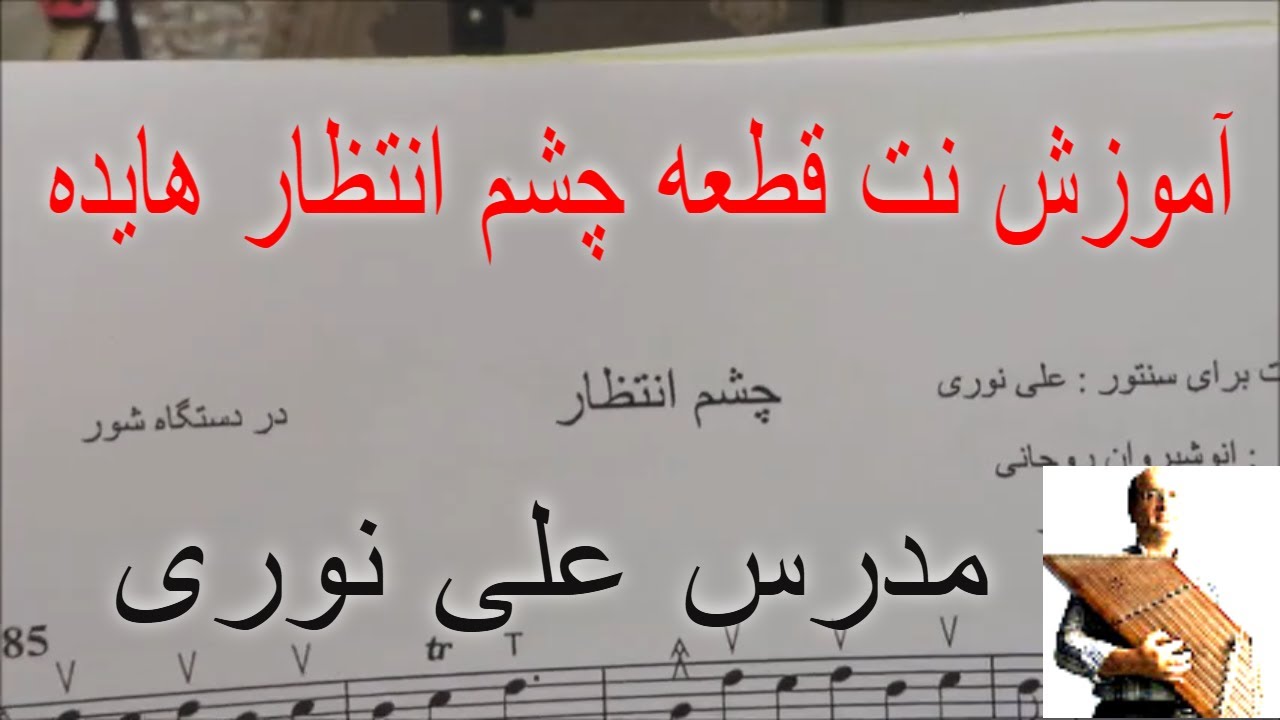 آموزش نت قطعه چشم انتظار هایده
ت برای سنتور : علی نوری
چشم انتظار
در دستگاه شور
: انوشیروان روحانی
مدرس علی نوری
85
tr T